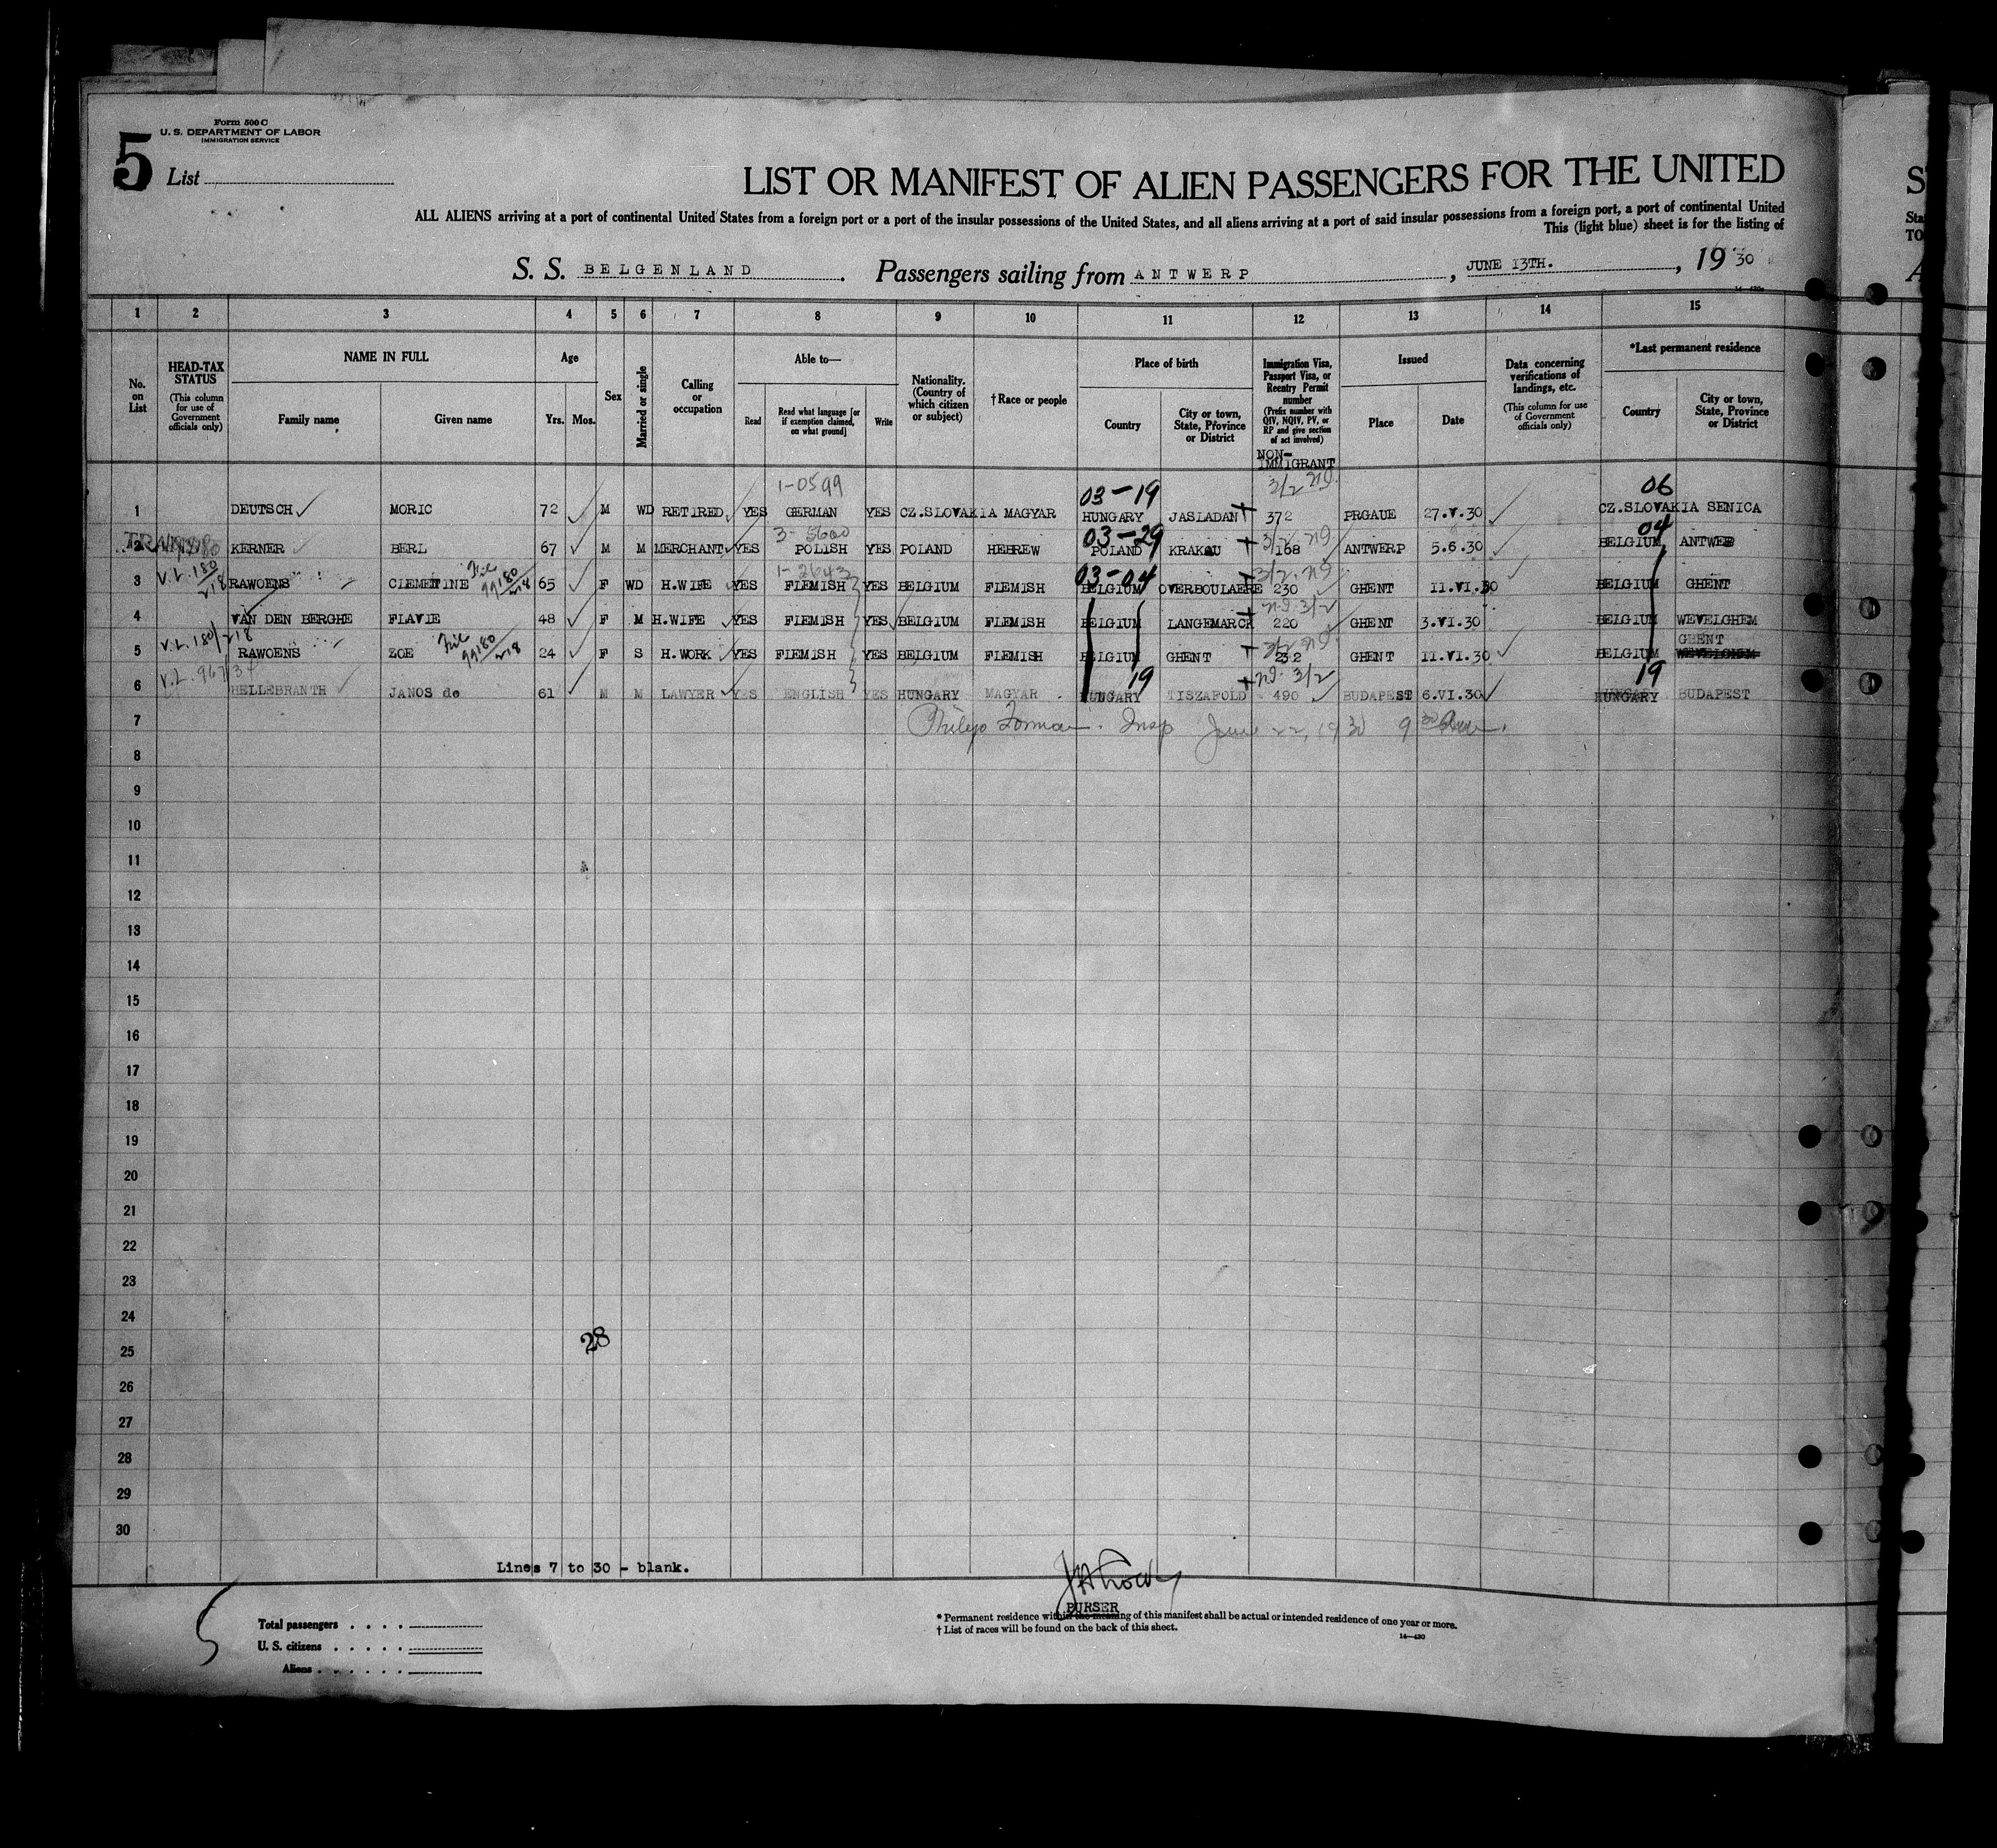 Form 500 C
U. S. DEPARTMENT OF LABOR
IMMIGRATION SERVICE
5
List
LIST OR MANIFEST OF ALIEN PASSENGERS FOR THE UNITED
ALL ALIENS arriving at a port of continental United States from a foreign port or a port of the insular possessions of the United States, and all aliens arriving at a port of said insular possessions from a foreign port, a port of continental United
This (light blue) sheet is for the listing of
S. S. BELGENLAND. Passengers sailing from ANTWERP, JUNE 13TH., 1930
1 2 3 4 5 6 7 8 9 10 11 12 13 14 15
No. on List
HEAD-TAX STATUS (This column for use of Government officials only)
NAME IN FULL
Family name Given name
Age
Yrs. Mos.
Sex
Married or single
Calling or occupation
Able to—
Read
Read what language [or if exemption claimed, on what ground]
Write
Nationality. (Country of which citizen or subject)
†Race or people
Place of birth
Country
City or town, State, Province or District
Immigration Visa, Passport Visa, or Reentry Permit number (Prefix number with QIV, NQIV, PV, or RP and give section of act involved)
NON-IMMIGRANT
Issued
Place Date
Data concerning verifications of landings, etc. (This column for use of Government officials only)
*Last permanent residence
Country
City or town, State, Province or District
1-0599 03-19 3/2 06
1 DEUTSCH MORIC 72 M WD RETIRED YES GERMAN YES CZ.SLOVAKIA MAGYAR HUNGARY JASLADAN 372 PRGAUE 27.V.30 CZ.SLOVAKIA SENICA
3-5600 03-29 3/2 04
2 KERNER BERL 67 M M MERCHANT YES POLISH YES POLAND HEBREW POLAND KRAKAU 168 ANTWERP 5.6.30 BELGIUM ANTWEB
1-2643 03-04 3/2
3 RAWOENS CLEMETINE 65 F WD H.WIFE YES FLEMISH YES BELGIUM FLEMISH BELGIUM OVERBOULAERE 230 GHENT 11.VI.30 BELGIUM GHENT
3/2
4 VAN DEN BERGHE FLAVIE 48 F M H.WIFE YES FLEMISH YES BELGIUM FLEMISH BELGIUM LANGEMARCK 220 GHENT 3.VI.30 BELGIUM WEVELGHEM
V.L. 180/218 3/2 GHENT
5 RAWOENS ZOE 24 F S H.WORK YES FLEMISH YES BELGIUM FLEMISH BELGIUM GHENT 232 GHENT 11.VI.30 BELGIUM WEVELGHEM
19 3/2 19
6 HELLEBRANTH JANOS de 61 M M LAWYER YES ENGLISH YES HUNGARY MAGYAR HUNGARY TISZAFOLD 490 BUDAPEST 6.VI.30 HUNGARY BUDAPEST
7 Insp June 22, 1930
8
9
10
11
12
13
14
15
16
17
18
19
20
21
22
23
24
28
25
26
27
28
29
30
Lines 7 to 30 - blank.
PURSER
5
Total passengers
U. S. citizens
Aliens
* Permanent residence within the meaning of this manifest shall be actual or intended residence of one year or more.
† List of races will be found on the back of this sheet.
14—430